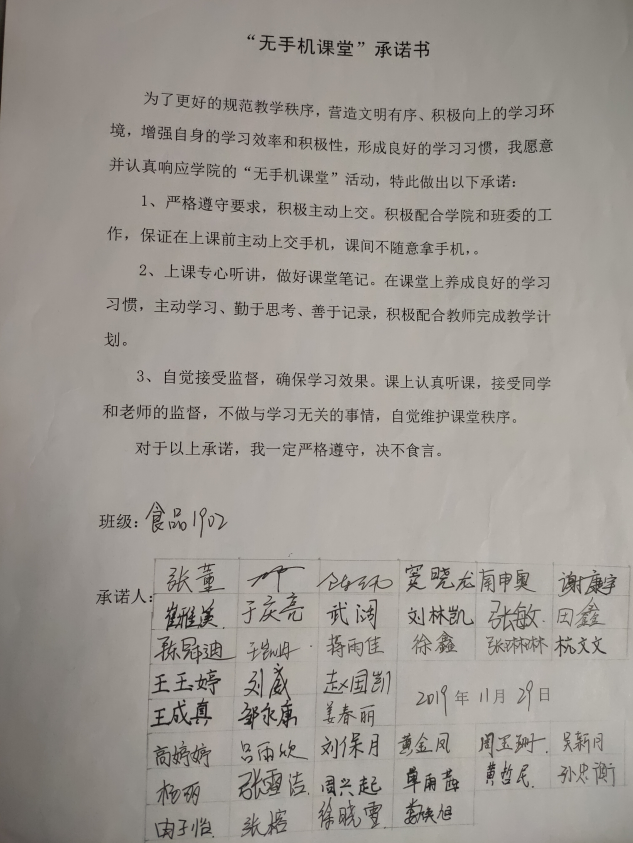 “无手机课堂”承诺书
为了更好的规范教学秩序，营造文明有序、积极向上的学习环
境，增强自身的学习效率和积极性，形成良好的学习习惯，我愿意
并认真响应学院的“无手机课堂”活动，特此做出以下承诺：
1、严格遵守要求，积极主动上交。积极配合学院和班委的工
作，保证在上课前主动上交手机，课间不随意拿手机，。
2、上课专心听讲，做好课堂笔记。在课堂上养成良好的学习
习惯，主动学习、勤于思考、善于记录，积极配合教师完成教学计
划。
3、自觉接受监督，确保学习效果。课上认真听课，接受同学
和老师的监督，不做与学习无关的事情，自觉维护课堂秩序。
对于以上承诺，我一定严格遵守，决不食言。
班级：食品1902
承诺人：张董 窦晓龙 南申奥 谢康宇
崔雅美 于庆亮 武阔 刘林凯 张敏 田鑫
陈舜迪 蒋雨佳 徐鑫 张琳琳 杭文文
王玉婷 刘威 赵国凯 2019年11月29日
王成真 邹永康 姜春丽
高婷婷 吕雨欣 刘保月 黄金凤 周玉珊 吴新月
杨丽 张雪洁 周兴起 黄哲民 孙忠谢
由子怡 张榕 徐晓雪 娄旭